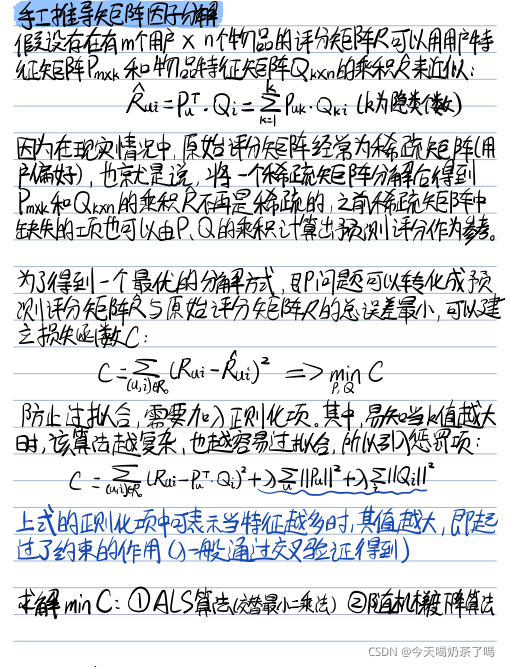 手工推导矩阵因子分解
假设存在有m个用户 × n个物品的评分矩阵R可以用用户特
征矩阵Pm×k 和物品特征矩阵Qk×n的乘积R̂来近似:
R̂ui = Pu^T · Qi = Σ(k=1→k) Puk · Qki (k为隐类个数)
因为在现实情况中,原始评分矩阵经常为稀疏矩阵(用
户偏好),也就是说,将一个稀疏矩阵分解后得到
Pm×k 和 Qk×n的乘积R̂不再是稀疏的,之前稀疏矩阵中
缺失的工页也可以由P、Q的乘积计算出预测评分作为参考。
为了得到一个最优的分解方式,即问题可以转化成预
测评分矩阵R̂与原始评分矩阵R的总误差最小,可以建
立损失函数C:
C = Σ(u,i)∈R₀ (Rui - R̂ui)² => min P,Q C
防止过拟合,需要加入正则化项。其中,易知当k值越大
时,该算法越复杂,也越容易过拟合,所以引入惩罚项:
C = Σ(u,i)∈R₀ (Rui - Pu^T · Qi)² + λΣu||Pu||² + λΣi||Qi||²
上式的正则化项中可表示当特征越多时,其值越大,即起
过了约束的作用(λ一般通过交叉验证得到)
求解 min C: ①ALS算法(交替最小二乘法) ②随机梯度下降算法
CSDN @今天喝奶茶了嗎